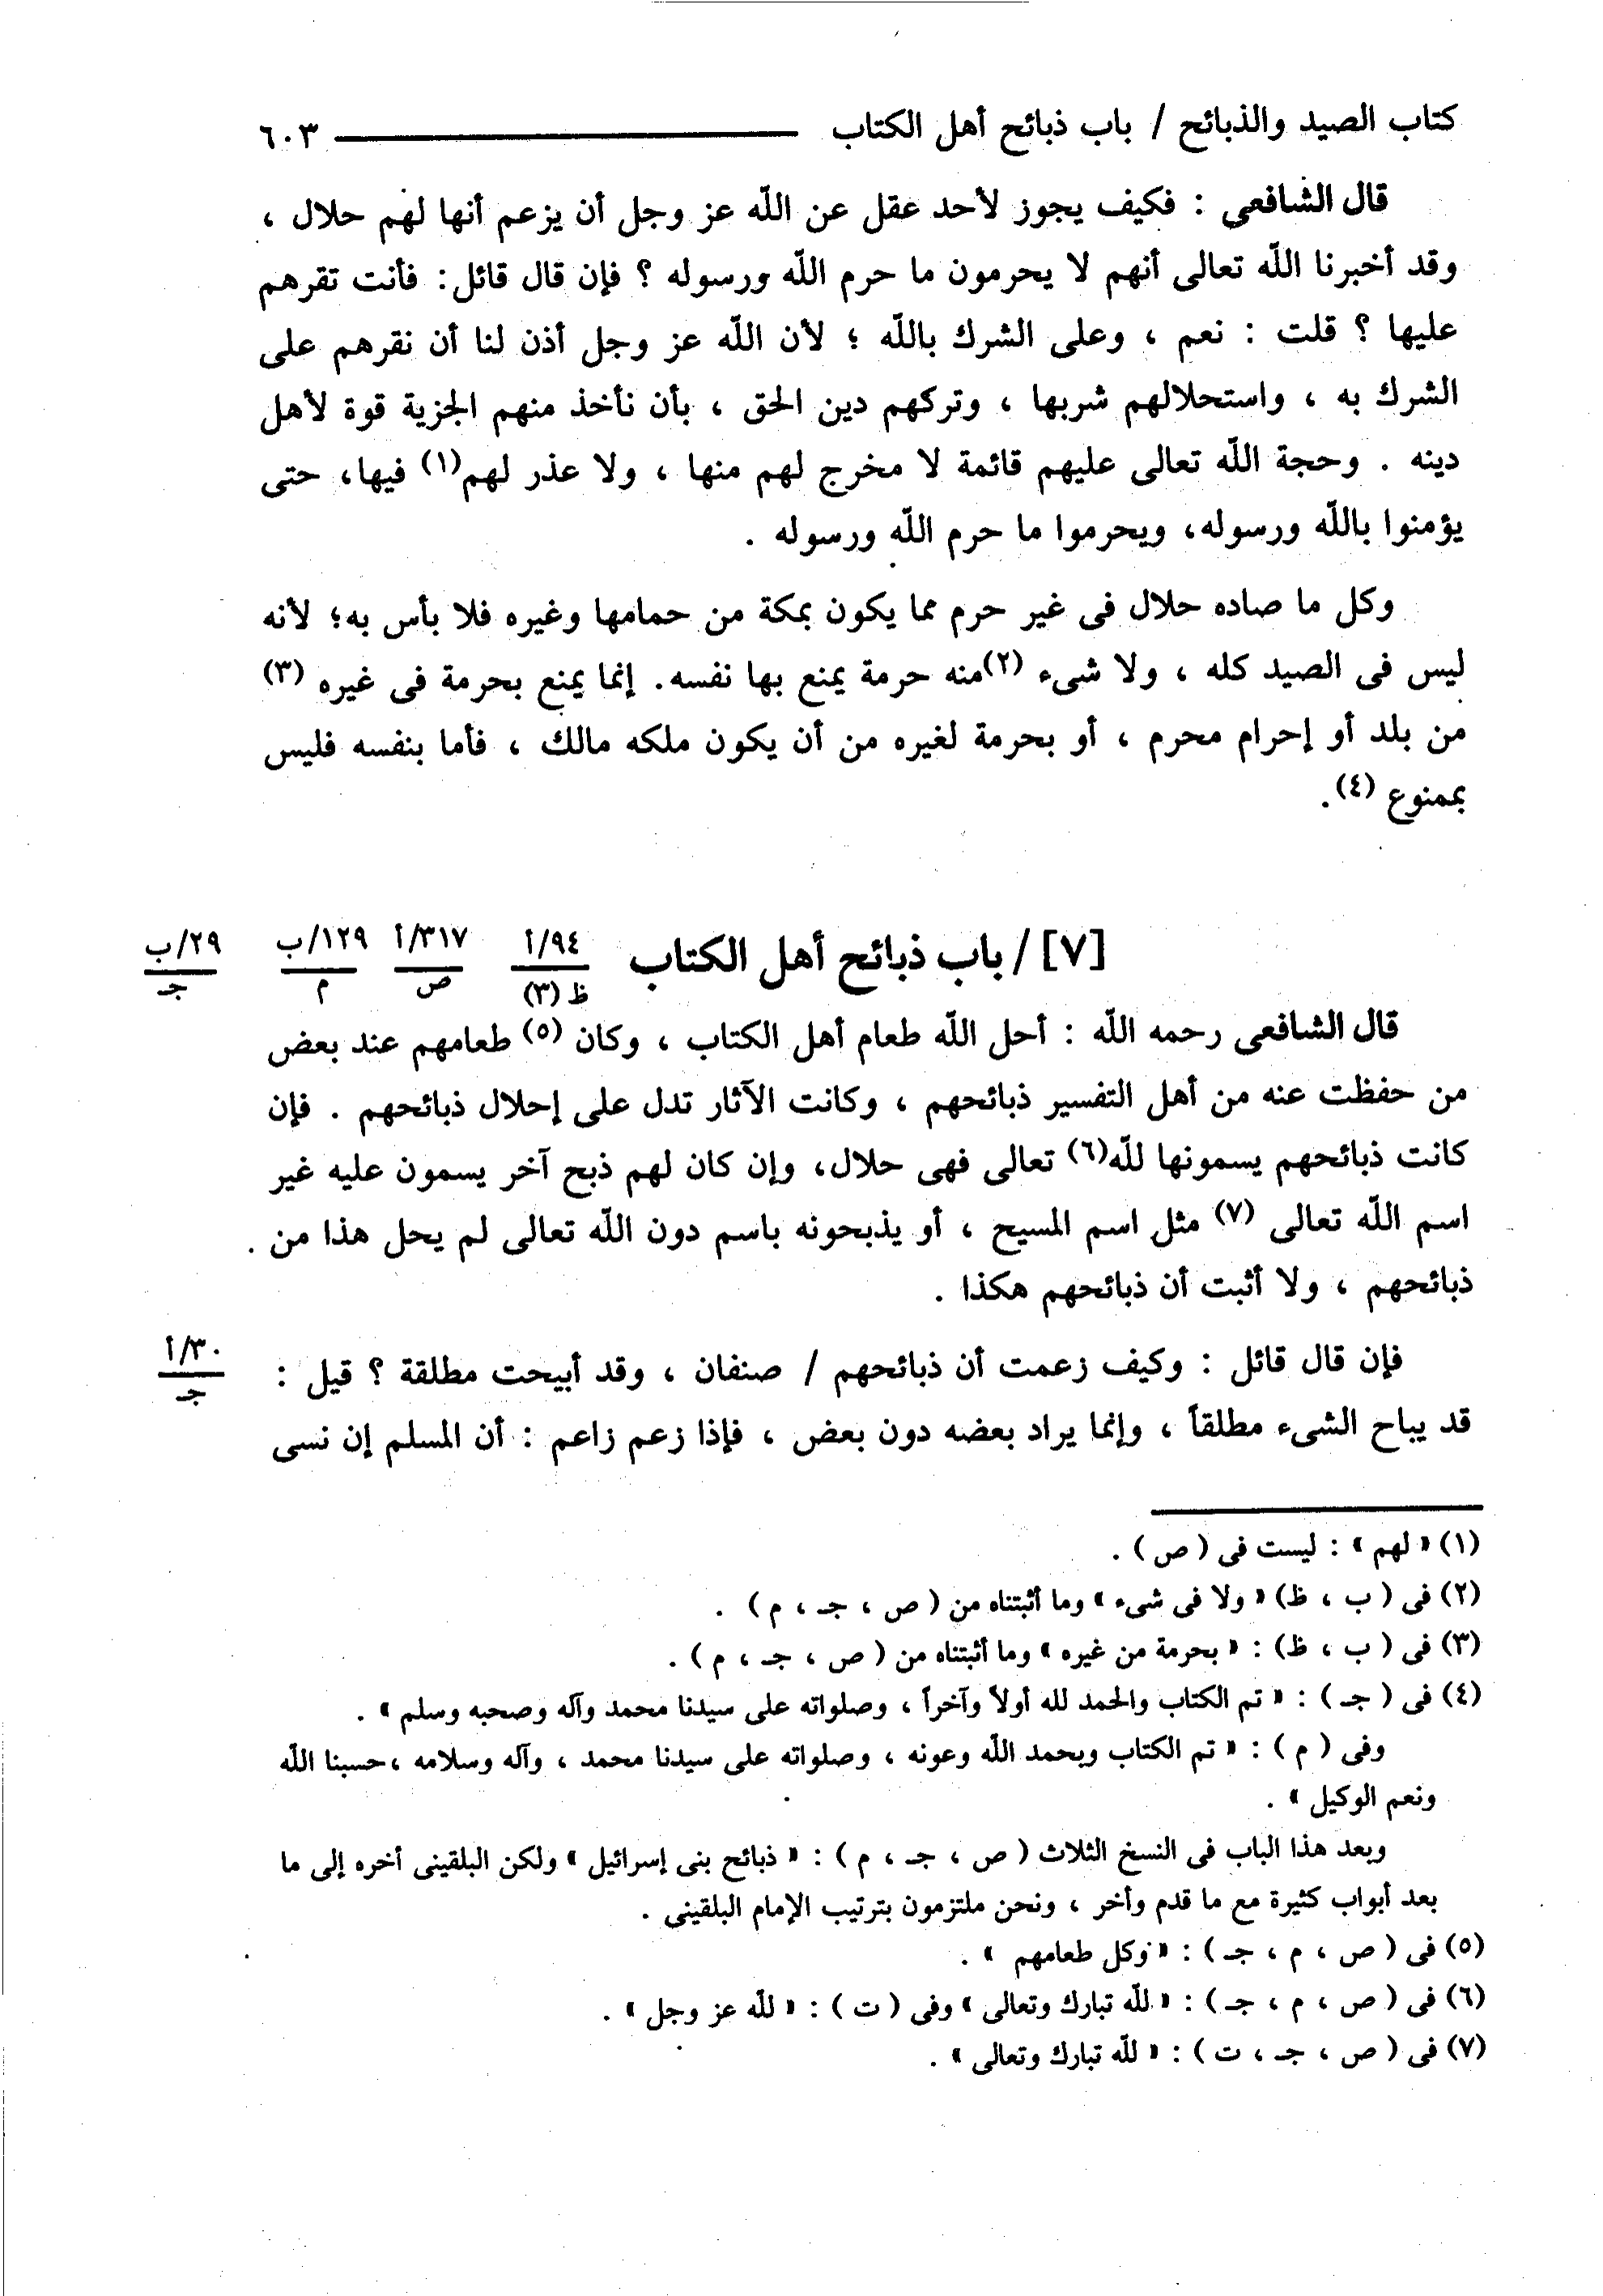 كتاب الصيد والذبائح / باب ذبائح أهل الكتاب ٦٠٣
قال الشافعى : فكيف يجوز لأحد عقل عن الله عز وجل أن يزعم أنها لهم حلال ،
وقد أخبرنا الله تعالى أنهم لا يحرمون ما حرم الله ورسوله ؟ فإن قال قائل: فأنت تقرهم
عليها ؟ قلت : نعم ، وعلى الشرك بالله ؛ لأن الله عز وجل أذن لنا أن نقرهم على
الشرك به ، واستحلالهم شربها ، وتركهم دين الحق ، بأن نأخذ منهم الجزية قوة لأهل
دينه . وحجة الله تعالى عليهم قائمة لا مخرج لهم منها ، ولا عذر لهم(١) فيها، حتى
يؤمنوا بالله ورسوله، ويحرموا ما حرم الله ورسوله .
وكل ما صاده حلال فى غير حرم مما يكون بمكة من حمامها وغيره فلا بأس به؛ لأنه
ليس فى الصيد كله ، ولا شىء (٢)منه حرمة يمنع بها نفسه. إنما يمنع بحرمة فى غيره (٣)
من بلد أو إحرام محرم ، أو بحرمة لغيره من أن يكون ملكه مالك ، فأما بنفسه فليس
بممنوع (٤).
[٧] / باب ذبائح أهل الكتاب ٩٤/أ ٣١٧/أ ١٢٩/ب ٢٩/ب
ظ (٣) ص م جـ
قال الشافعى رحمه الله : أحل الله طعام أهل الكتاب ، وكان (٥) طعامهم عند بعض
من حفظت عنه من أهل التفسير ذبائحهم ، وكانت الآثار تدل على إحلال ذبائحهم . فإن
كانت ذبائحهم يسمونها لله(٦) تعالى فهى حلال، وإن كان لهم ذبح آخر يسمون عليه غير
اسم الله تعالى (٧) مثل اسم المسيح ، أو يذبحونه باسم دون الله تعالى لم يحل هذا من
ذبائحهم ، ولا أثبت أن ذبائحهم هكذا .
فإن قال قائل : وكيف زعمت أن ذبائحهم / صنفان ، وقد أبيحت مطلقة ؟ قيل : ٣٠/أ
جـ
قد يباح الشىء مطلقاً ، وإنما يراد بعضه دون بعض ، فإذا زعم زاعم : أن المسلم إن نسى
(١) « لهم » : ليست فى ( ص ) .
(٢) فى ( ب ، ظ) « ولا فى شىء » وما أثبتناه من ( ص ، جـ ، م ) .
(٣) فى ( ب ، ظ) : « بحرمة من غيره » وما أثبتناه من ( ص ، جـ ، م ) .
(٤) فى ( جـ ) : « تم الكتاب والحمد لله أولاً وآخراً ، وصلواته على سيدنا محمد وآله وصحبه وسلم » .
وفى ( م ) : « تم الكتاب وبحمد الله وعونه ، وصلواته على سيدنا محمد ، وآله وسلامه ،حسبنا الله
ونعم الوكيل » .
وبعد هذا الباب فى النسخ الثلاث ( ص ، جـ ، م ) : « ذبائح بنى إسرائيل » ولكن البلقينى أخره إلى ما
بعد أبواب كثيرة مع ما قدم وأخر ، ونحن ملتزمون بترتيب الإمام البلقينى .
(٥) فى ( ص ، م ، جـ ) : « وكل طعامهم » .
(٦) فى ( ص ، م ، جـ ) : « لله تبارك وتعالى » وفى ( ت ) : « لله عز وجل » .
(٧) فى ( ص ، جـ ، ت ) : « لله تبارك وتعالى » .